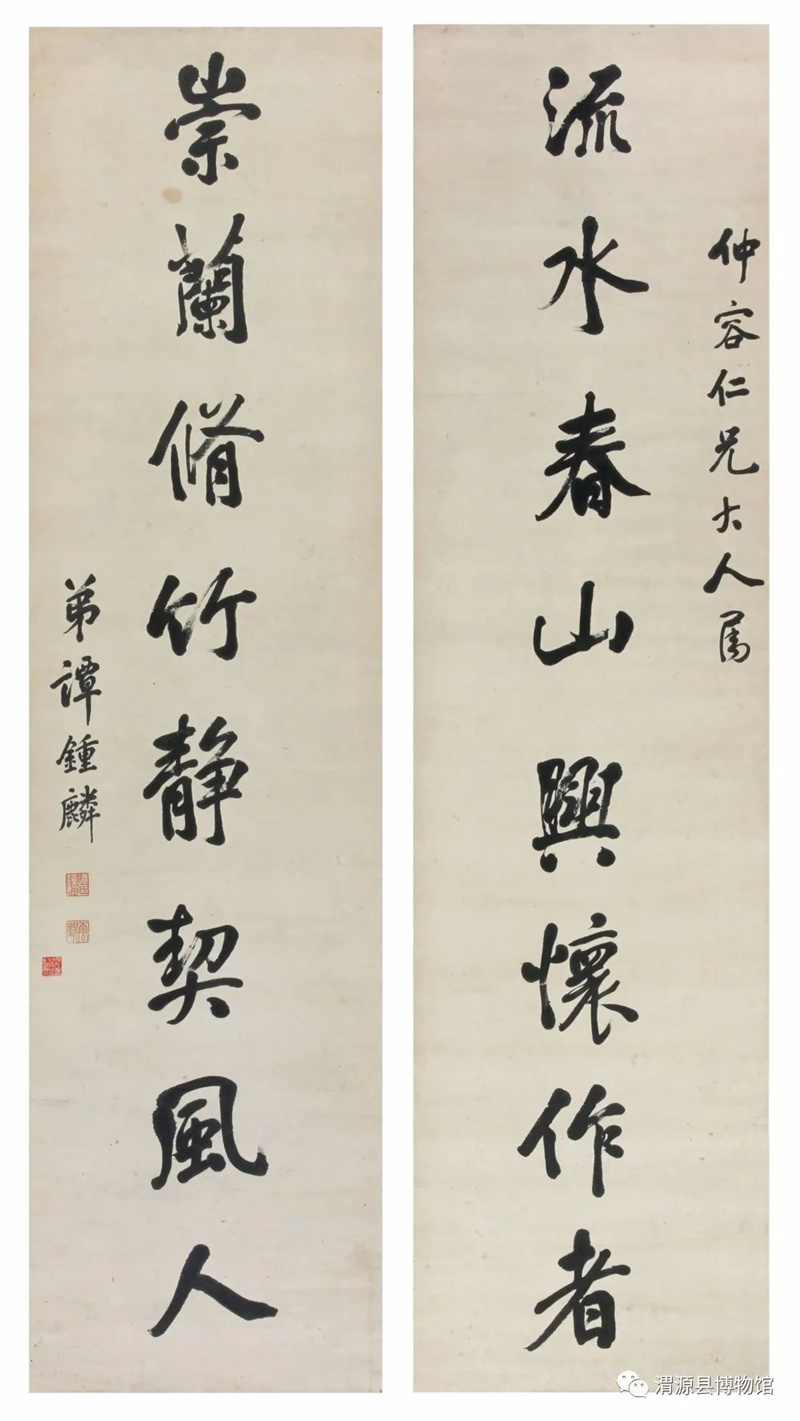 仲容仁兄大人属
流水春山興懷作者
崇蘭脩竹静契風人
弟譚鍾麟
渭源县博物馆